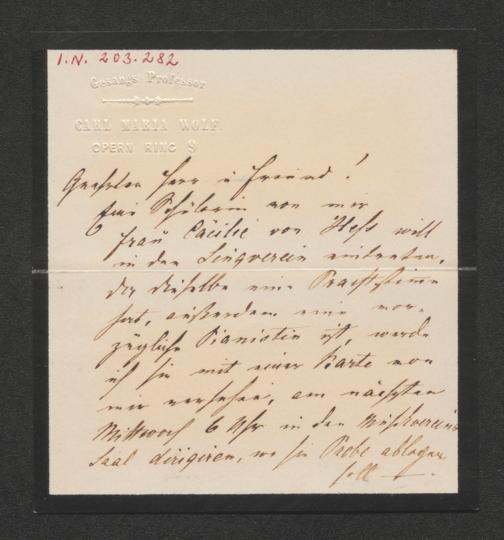 I.N. 203.282
Gesangs Professor
CARL MARIA WOLF.
OPERN RING 8
Geehrter Herr u Freund!
Eine Schülerin von mir
Frau Cäcilie von Heß will
in den Singverein eintreten,
da dieselbe eine Prachtstimme
hat, außerdem eine vor-
zügliche Pianistin ist, werde
ich sie mit einer Karte von
mir versehen, am nächsten
Mittwoch 6 Uhr in den Musikvereins
Saal dirigiren, wo sie Probe ablegen
soll —.